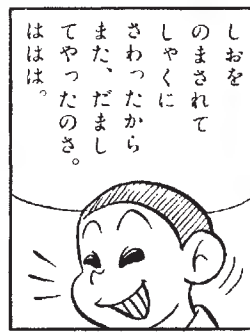 しおを
のまされて
しゃくに
さわったから
また、だまし
てやったのさ。
ははは。